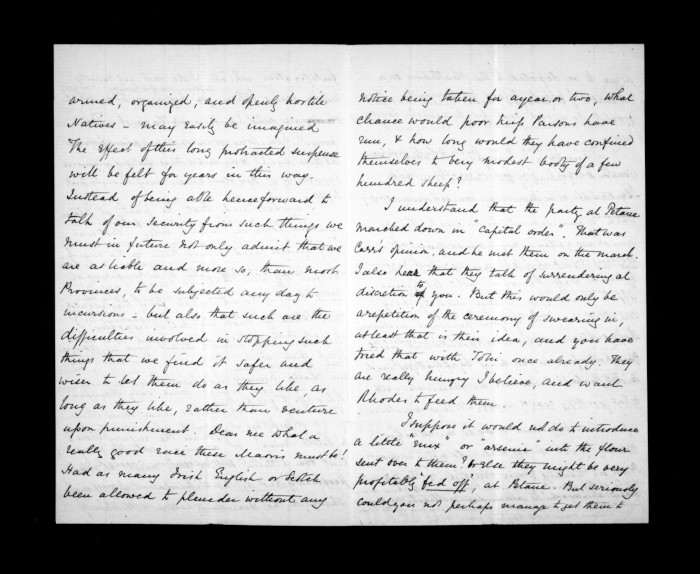 armed, organized, and openly hostile
Natives – may easily be imagined
The effect of this long protracted suspense
will be felt for years in this way.
Instead of being able henceforward to
talk of our security from such things we
must in future not only admit that we
are as liable and more so, than most
Provinces, to be subjected any day to
incursions – but also that such are the
difficulties involved in stopping such
things that we find it safer and
wiser to let them do as they like, as
long as they like, rather than venture
upon punishment. Dear me what a
really good race these Maoris must be!
Had as many Irish English or Scotch
been allowed to plunder without any
notice being taken for a year or two, what
chance would poor Miss Parsons have
run, & how long would they have confined
themselves to very modest booty of a few
hundred sheep?
I understand that the party at Petane
marched down in "capital order". That was
Carr's opinion, and he met them on the march.
I also hear that they talk of surrendering at
discretion to you. But this would only be
a repetition of the ceremony of swearing in,
at least that is their idea, and you have
tried that with Tohi once already. They
are really hungry I believe, and want
Rhodes to feed them.
I suppose it would not do to introduce
a little "nux" or "arsenic" into the flour
sent over to them? Or else they might be very
profitably fed off, at Petane. But seriously
could you not perhaps manage to get them to